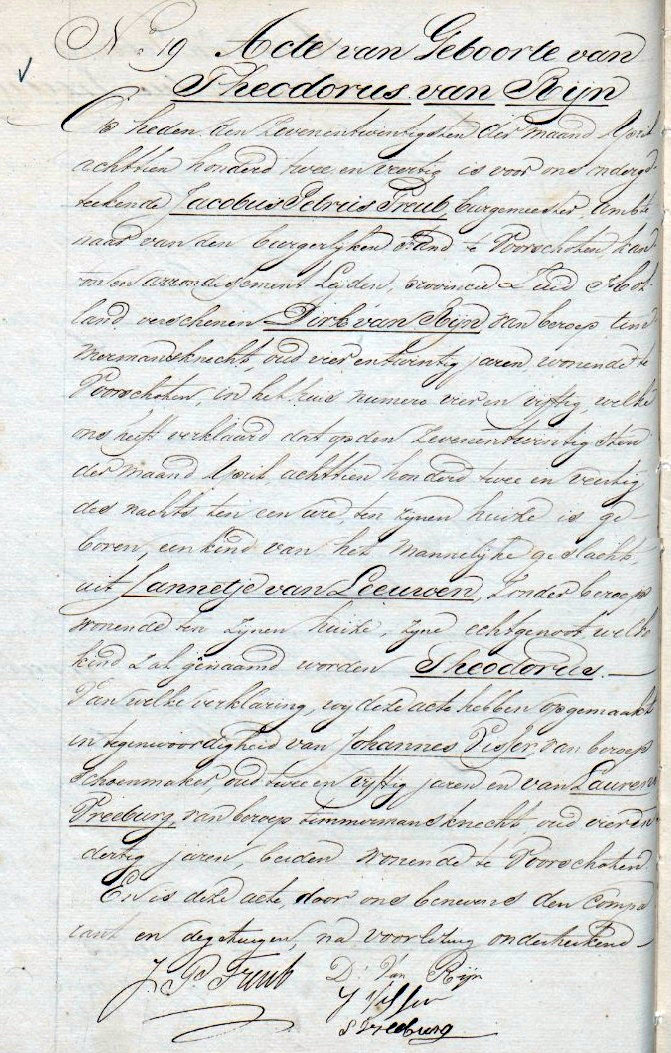 No. 19 Acte van Geboorte van
Theodorus van Rijn
Op heden den Zevenentwintigsten der maand April
achttien honderd twee en veertig is voor ons onderge-
teekende Jacobus Petrus Treub burgemeester, Ambte-
naar van den burgerlijken stand te Voorschoten, kan-
ton en arrondissement Leijden, provincie Zuid Hol-
land verschenen Dirk van Rijn van beroep tim-
mermansknecht, oud vier en twintig jaren, wonende te
Voorschoten, in het huis numero vier en vijftig, welke
ons heeft verklaard dat op den Zevenentwintigsten
der maand April, achttien honderd twee en veertig
des nachts ten een ure, ten zijnen huize is ge-
boren, een kind van het Mannelijke geslacht,
uit Jannetje van Leeuwen, zonder beroep
wonende ten zijnen huize, zijne echtgenoot welk
kind zal genaamd worden Theodorus.
Van welke verklaring, wij deze acte hebben opgemaakt
in tegenwoordigheid van Johannes Visser van beroep
Schoenmaker, oud twee en vijftig jaren en van Laurens
Vreeburg, van beroep timmermansknecht, oud vier en
dertig jaren, beiden wonende te Voorschoten
En is deze acte, door ons benevens den compa
rant en de getuigen, na voorlezing onderteekend
J. P. Treub D. Van Rijn
J Visser
Vreeburg